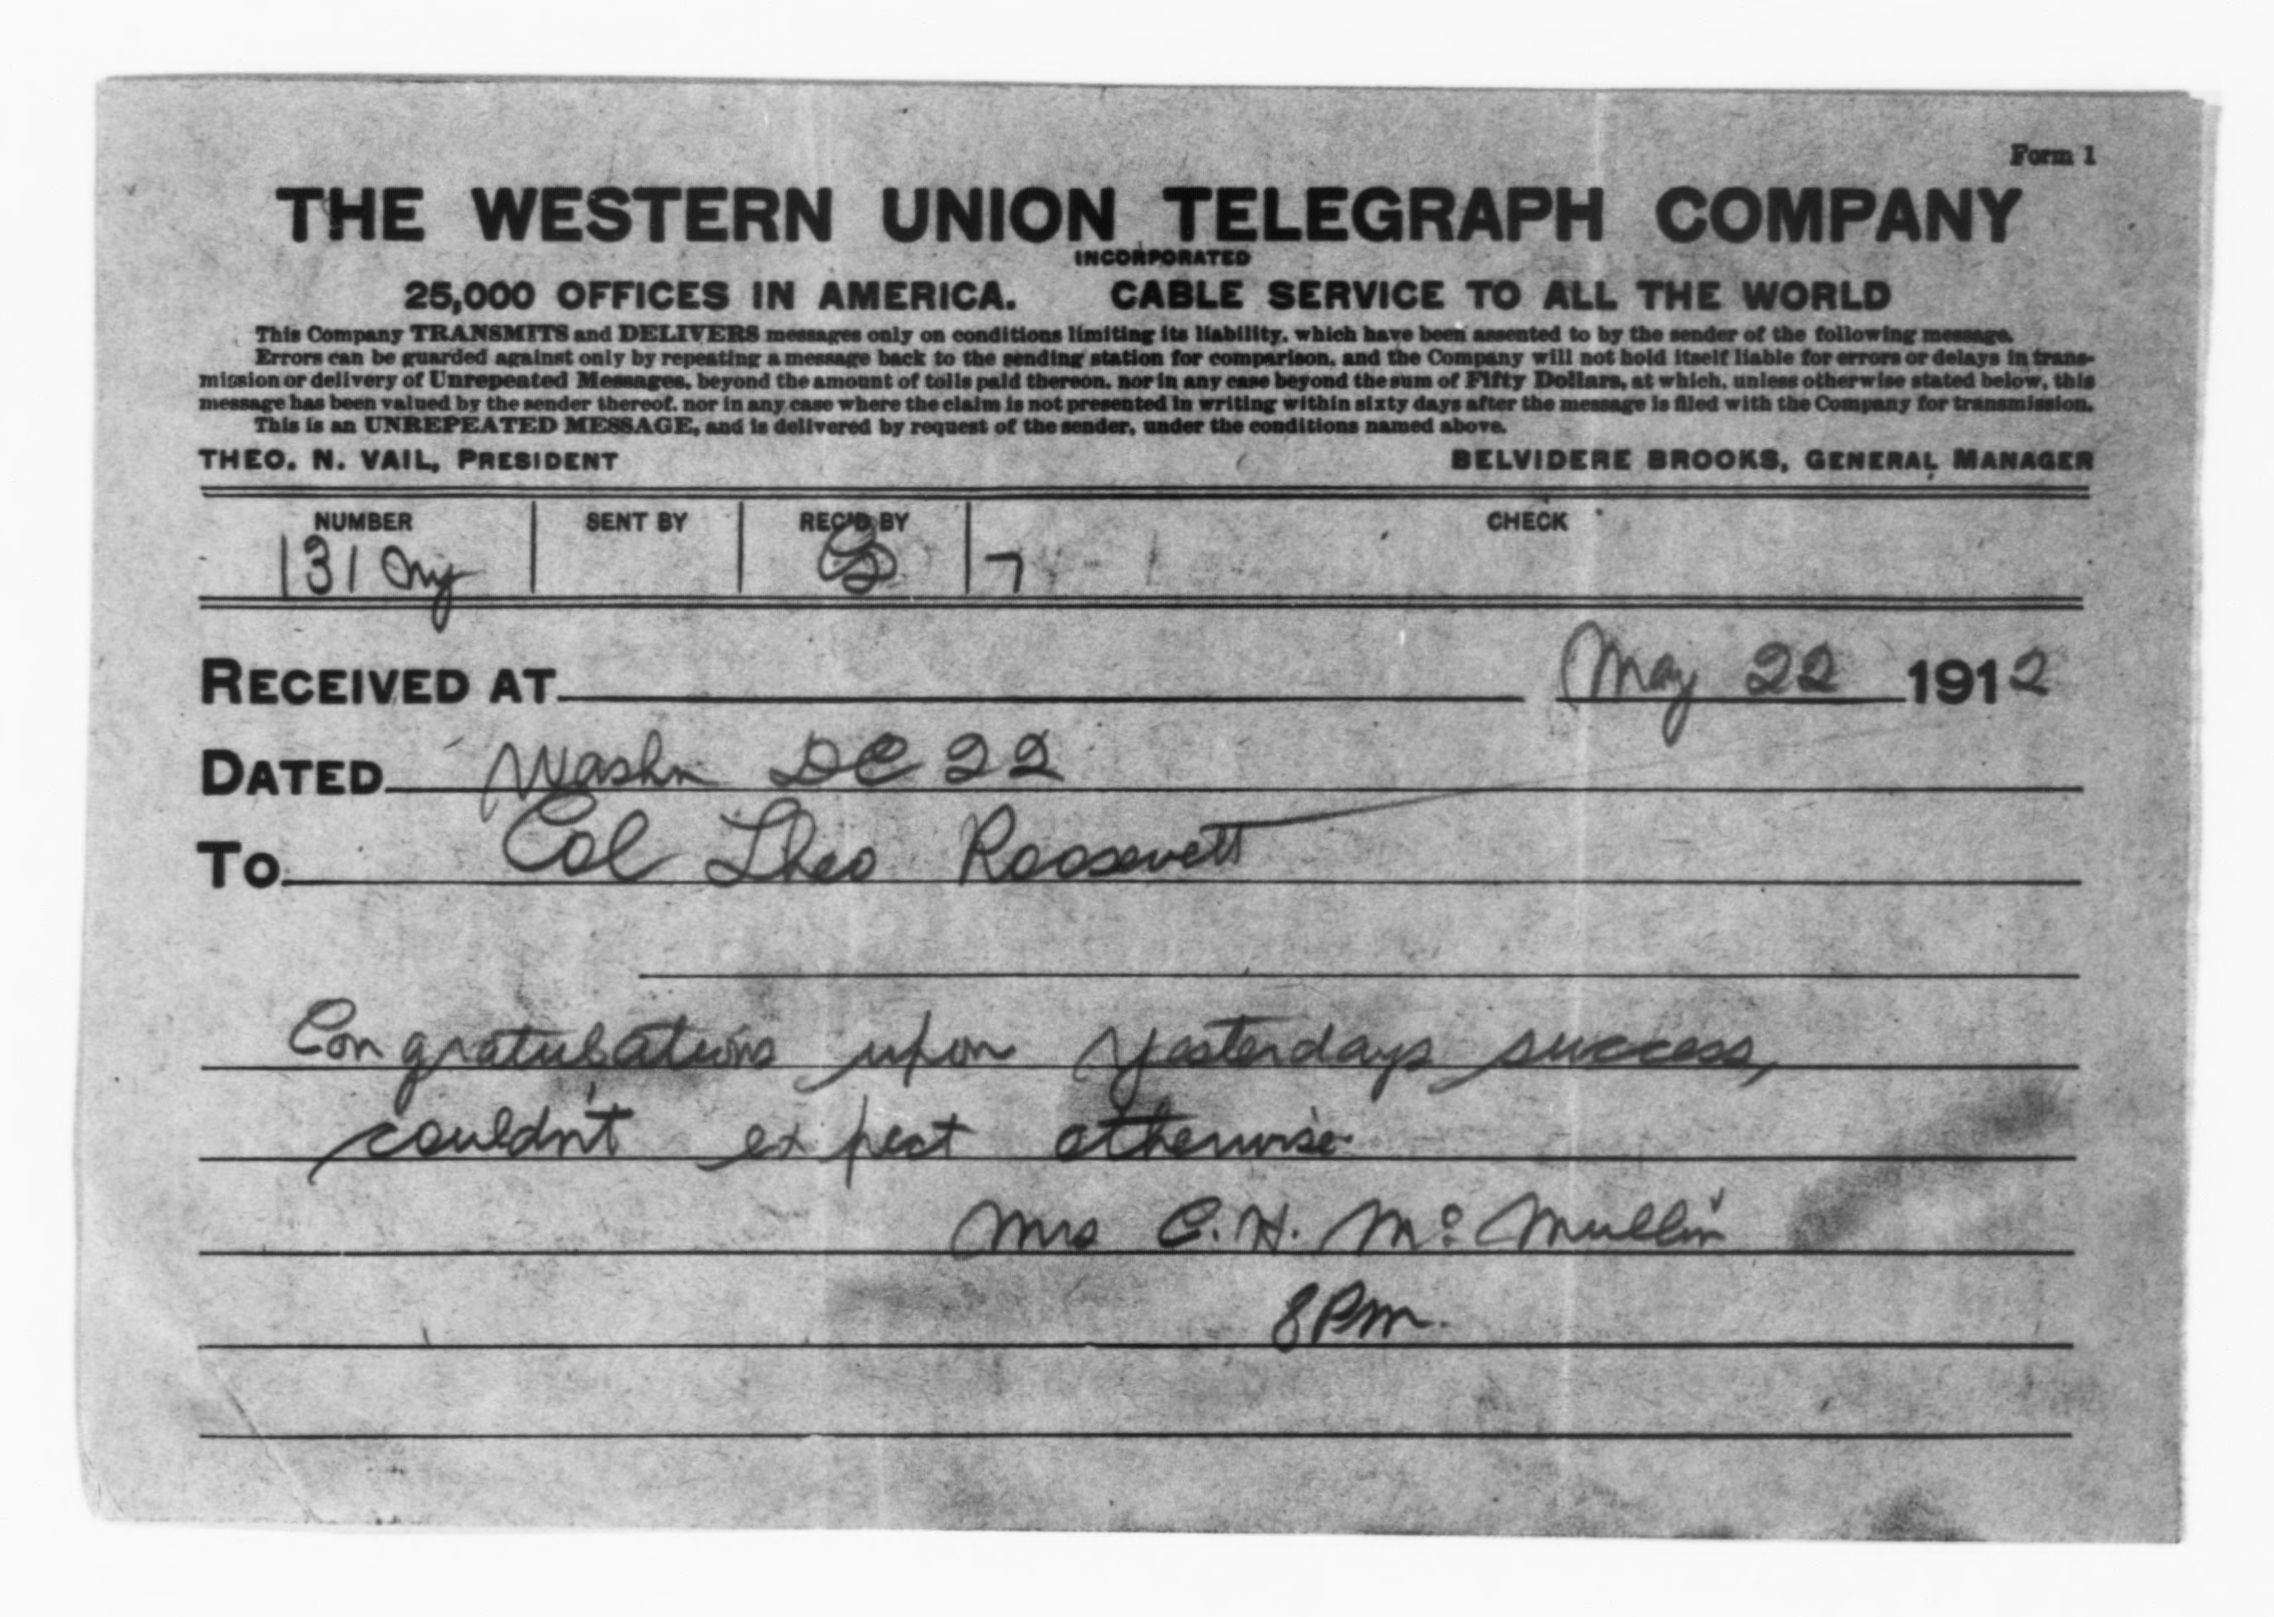 Form 1
THE WESTERN UNION TELEGRAPH COMPANY
INCORPORATED
25,000 OFFICES IN AMERICA. CABLE SERVICE TO ALL THE WORLD
This Company TRANSMITS and DELIVERS messages only on conditions limiting its liability, which have been assented to by the sender of the following message.
Errors can be guarded against only by repeating a message back to the sending station for comparison, and the Company will not hold itself liable for errors or delays in trans-
mission or delivery of Unrepeated Messages, beyond the amount of tolls paid thereon, nor in any case beyond the sum of Fifty Dollars, at which, unless otherwise stated below, this
message has been valued by the sender thereof, nor in any case where the claim is not presented in writing within sixty days after the message is filed with the Company for transmission.
This is an UNREPEATED MESSAGE, and is delivered by request of the sender, under the conditions named above.
THEO. N. VAIL, PRESIDENT BELVIDERE BROOKS, GENERAL MANAGER
NUMBER SENT BY REC'D BY CHECK
131 Ny 7
RECEIVED AT May 22 1912
DATED Washn DC 22
To Col Theo Roosevelt
Congratulations upon yesterdays success,
couldn't expect otherwise
Mrs C. H. Mc Mullin
8 Pm.